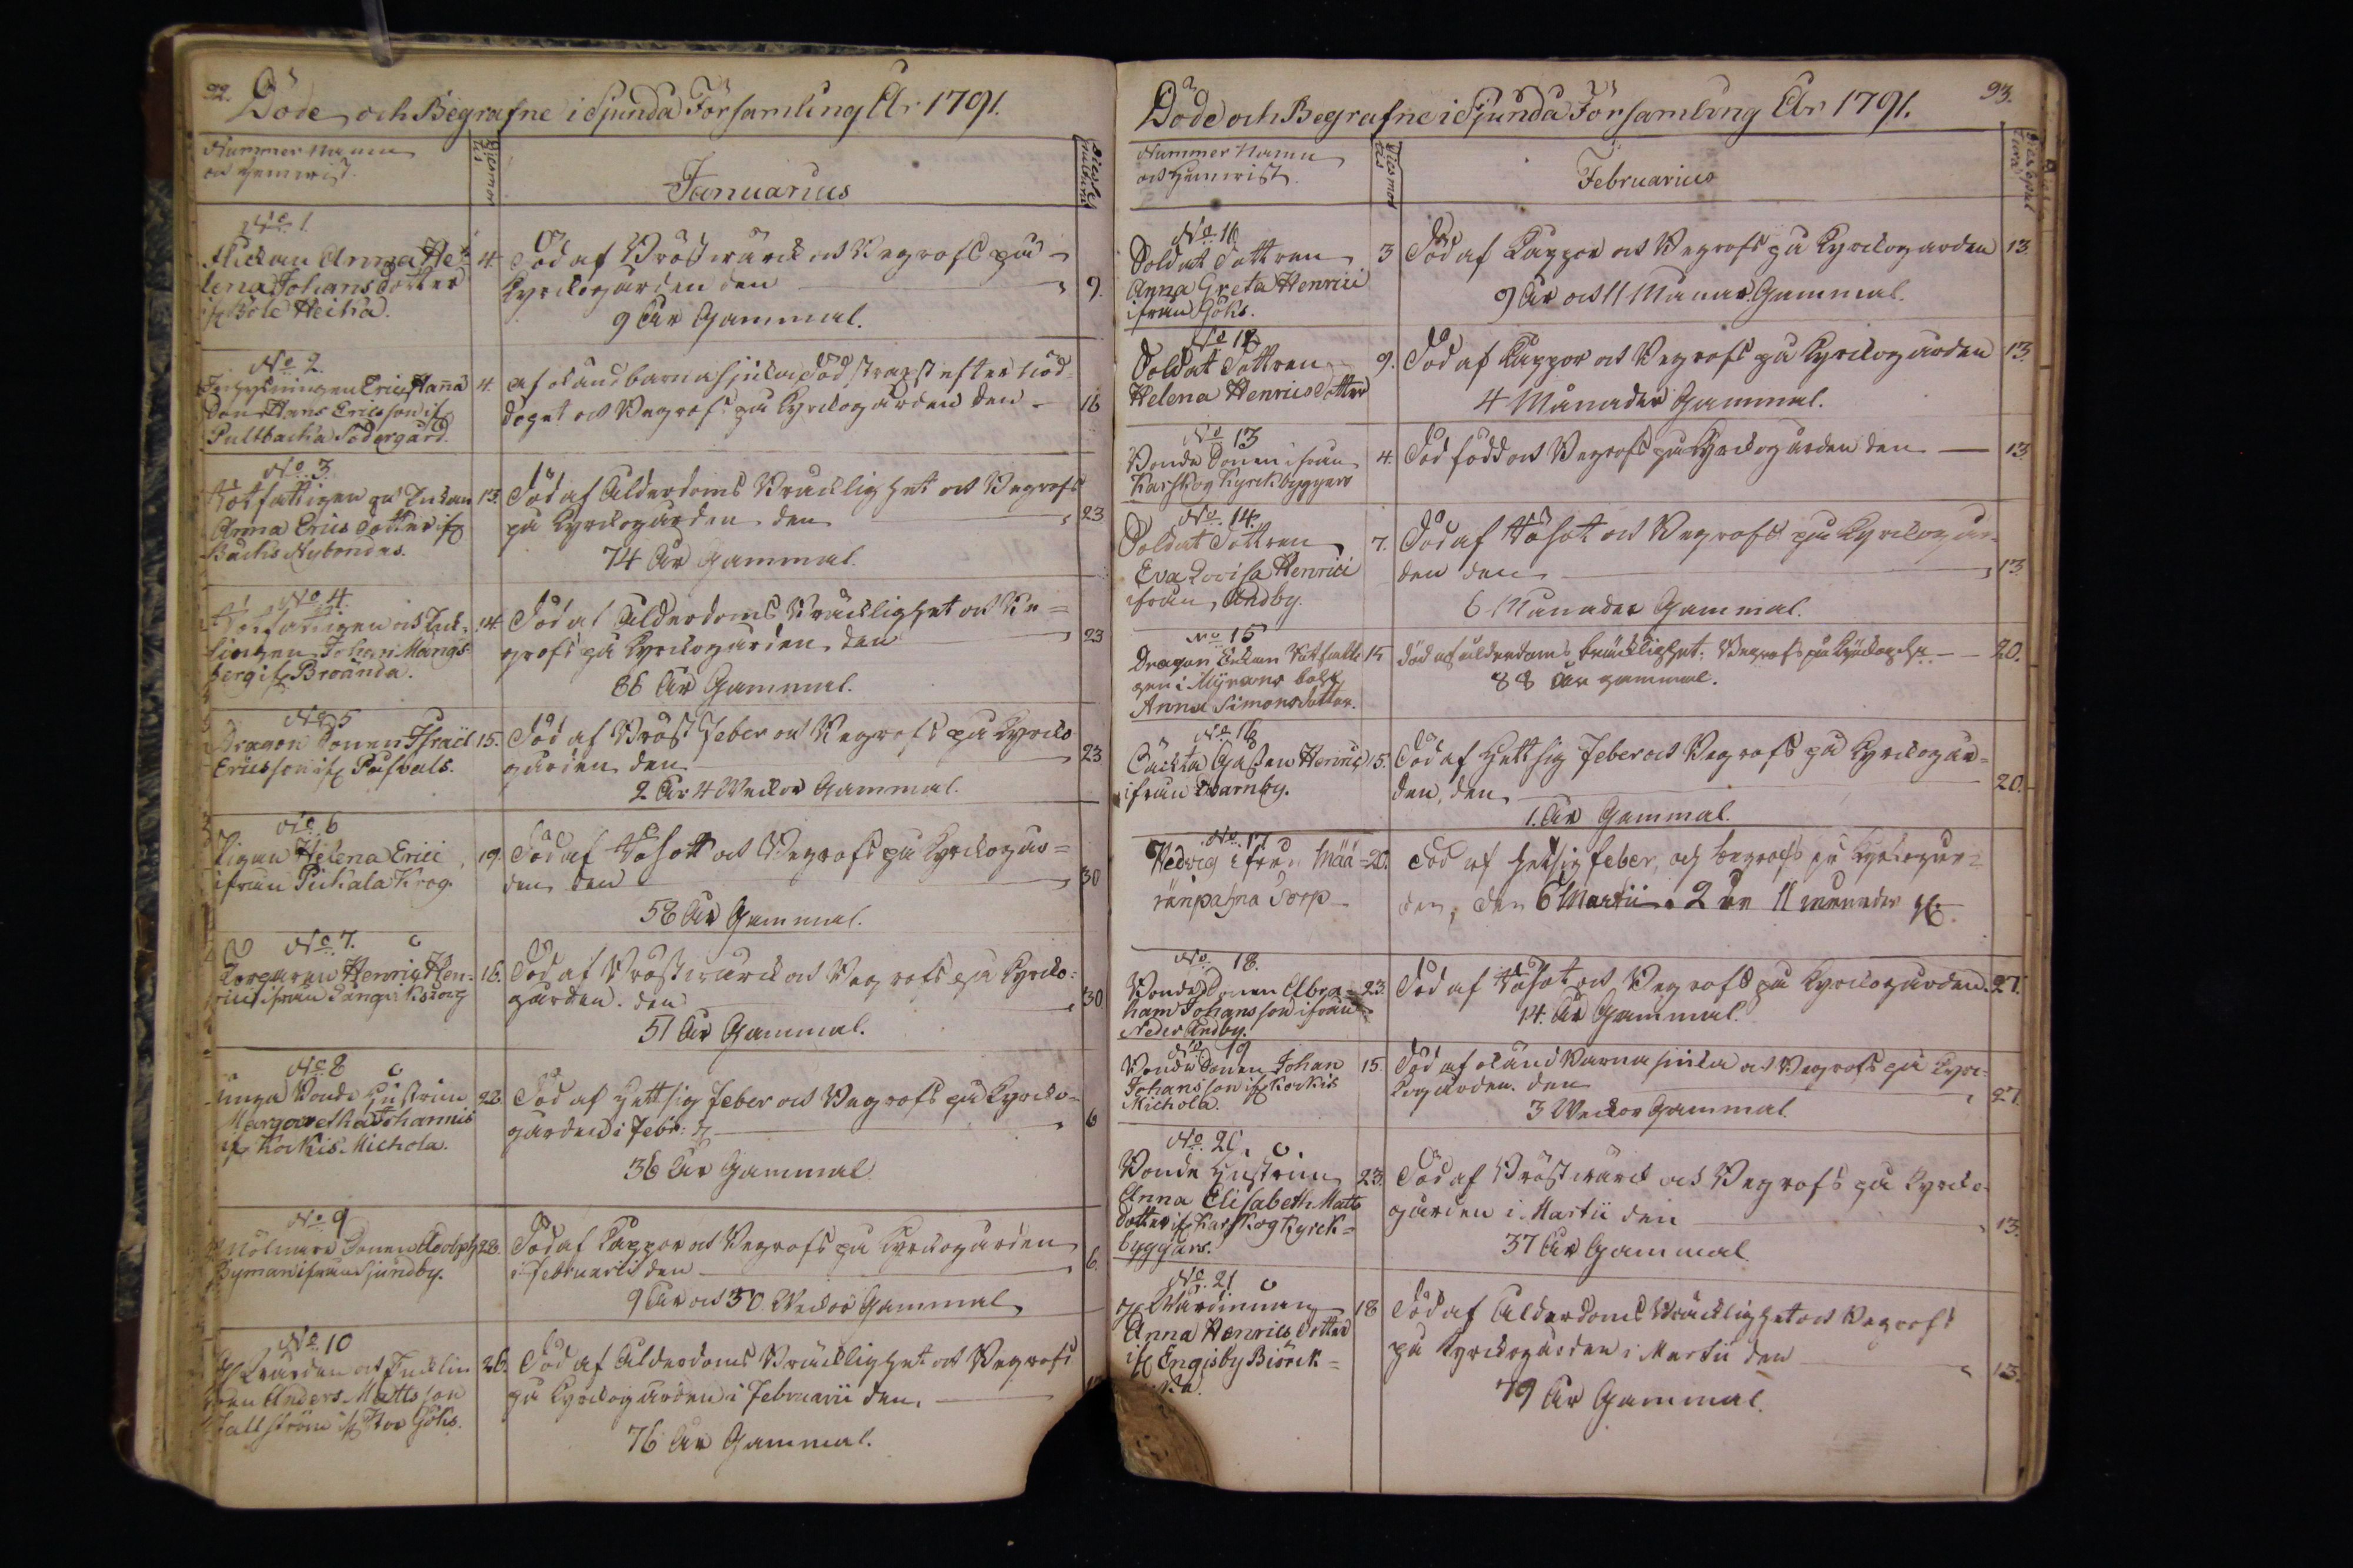 92.
Döde och Begrafne i Sjunda Församling År 1791.
Nummer Namn
och Hemvist.
Januarius
No 1.
Flickan Anna He=
lena Johansdotter
if. Böle Heika.
4.
Död af Bröstwärck och Begrofs på
Kyrckogården den
9 År Gammal.
9.
No 2.
Eric Hans
Sonen Hans Ericsson if.
Pultbacka Södergård.
4.
af okänd barnasjuka Död strax efter nöd=
dopet och Begrofs på Kyrckogården den
16
No 3.
Rotfattigen och Enkan
Anna Erics dotter if.
Bäcks Nybondas.
13.
Död af Ålderdoms Bräcklighet och Begrofs
på Kyrckogården den
74 År Gammal.
23
No 4.
Rotfattigen och
Johan Mångs=
berg if. Broända.
14
Död af Ålderdoms Bräcklighet och Be=
grofs på Kyrckogården den
86 År Gammal.
23
No 5
Dragon Sonen Israel
Ericsson if. Purvals.
15.
Död af Bröst Feber och Begrofs på Kyrcko
gården den
2 År 4 Weckor Gammal.
23
No 6
Pigan Helena Erici
ifrån Pickala Krog.
19.
Död af Rösott och Begrofs på Kyrckogår=
den den
58 År Gammal.
30
No 7.
Torparen Henric Hen=
rici ifrån Långvikstorp
16.
Död af Bröstwärck och Begrofs på Kyrcko=
gården. den
51 År Gammal.
30
No 8
unga Bonde Hustrun
Margaretha Johannis
if. Kockis Michola.
22.
Död af Hettsig Feber och Begrofs på Kyrcko=
gården i Febr:
36 År Gammal
6
No 9
Mölnare Sonen Adolph
Byman ifrån Sjundby.
28.
Död af Kappor och Begrofs på Kyrckogården
i Februarii den
9 År och 30 Weckor Gammal
6.
No 10
och Enklin
gen Anders Mattsson
Fallström if. Stor Göhs.
26.
Död af Ålderdoms Bräcklighet och Begrofs
på Kyrckogården i Februarii den.
76 År Gammal.
93.
Döde och Begrafne i Sjunda Församling År 1791.
Nummer Namn
och Hemvist.
Februarius
No 11
Soldat Dottren
Anna Greta Henrici
ifrån Göhs.
3
Död af Kappor och Begrofs på Kyrckogården
9 År och 11 Månar Gammal.
13.
No 12
Soldat Dottren
Helena Henricsdotter
9.
Död af Kappor och Begrofs på Kyrckogården
4 Månader Gammal.
13.
No 13
Bonde Sonen ifrån
Karskog Kyrckbyggers
4.
Död född och Begrofs på Kyrckogården den
13.
No. 14.
Soldat Dottren
Eva Lovisa Henrici
ifrån Andby.
7.
Död af Rösot och Begrofs på Kyrckogår=
den den
6 Månader Gammal.
13.
No 15
Dragon Enkan Rotfatti
gen i Myrans
Anna Simonsdotter.
15
död af ålderdoms bräcklighet. Begrofs på Kyrckog.
88 År gammal.
20.
No 16
Henric
ifrån Qvarnby.
15.
Död af Hettsig Feber och Begrofs på Kyrckogår=
den, den
1. År Gammal.
20.
No 17
Hedvig ifrån Mää=
ränpahna Torp
20.
Död af hetsig feber, och begrofs på kyrkogår=
den, den 6 Martii. 2 år 11 månader gl.
No. 18.
Bonde Sonen Abra=
ham Johansson ifrån
Neder Andby.
23.
Död af Rösot och Begrofs på Kyrckogården.
14. År Gammal.
27.
No 19
Bonde Sonen Johan
Johansson if. Kockis
Michola.
15.
Död af okänd Barna sjuka och Begrofs på Kyrc=
kogården. den
3 Weckor Gammal.
27.
No. 20.
Bonde Hustrun
Anna Elisabeth Matts
dotter if. Karskog Kyrck=
byggärs.
23.
Död af Bröstwärck och Begrofs på Kyrcko=
gården i Martii den
37 År Gammal
13.
No. 21
Anna Henrics dotter
if. Engisby Biörck=
18
Död af Ålderdoms Bräcklighet och Begrofs
på Kyrckogården i Martii den
79 År Gammal.
13.